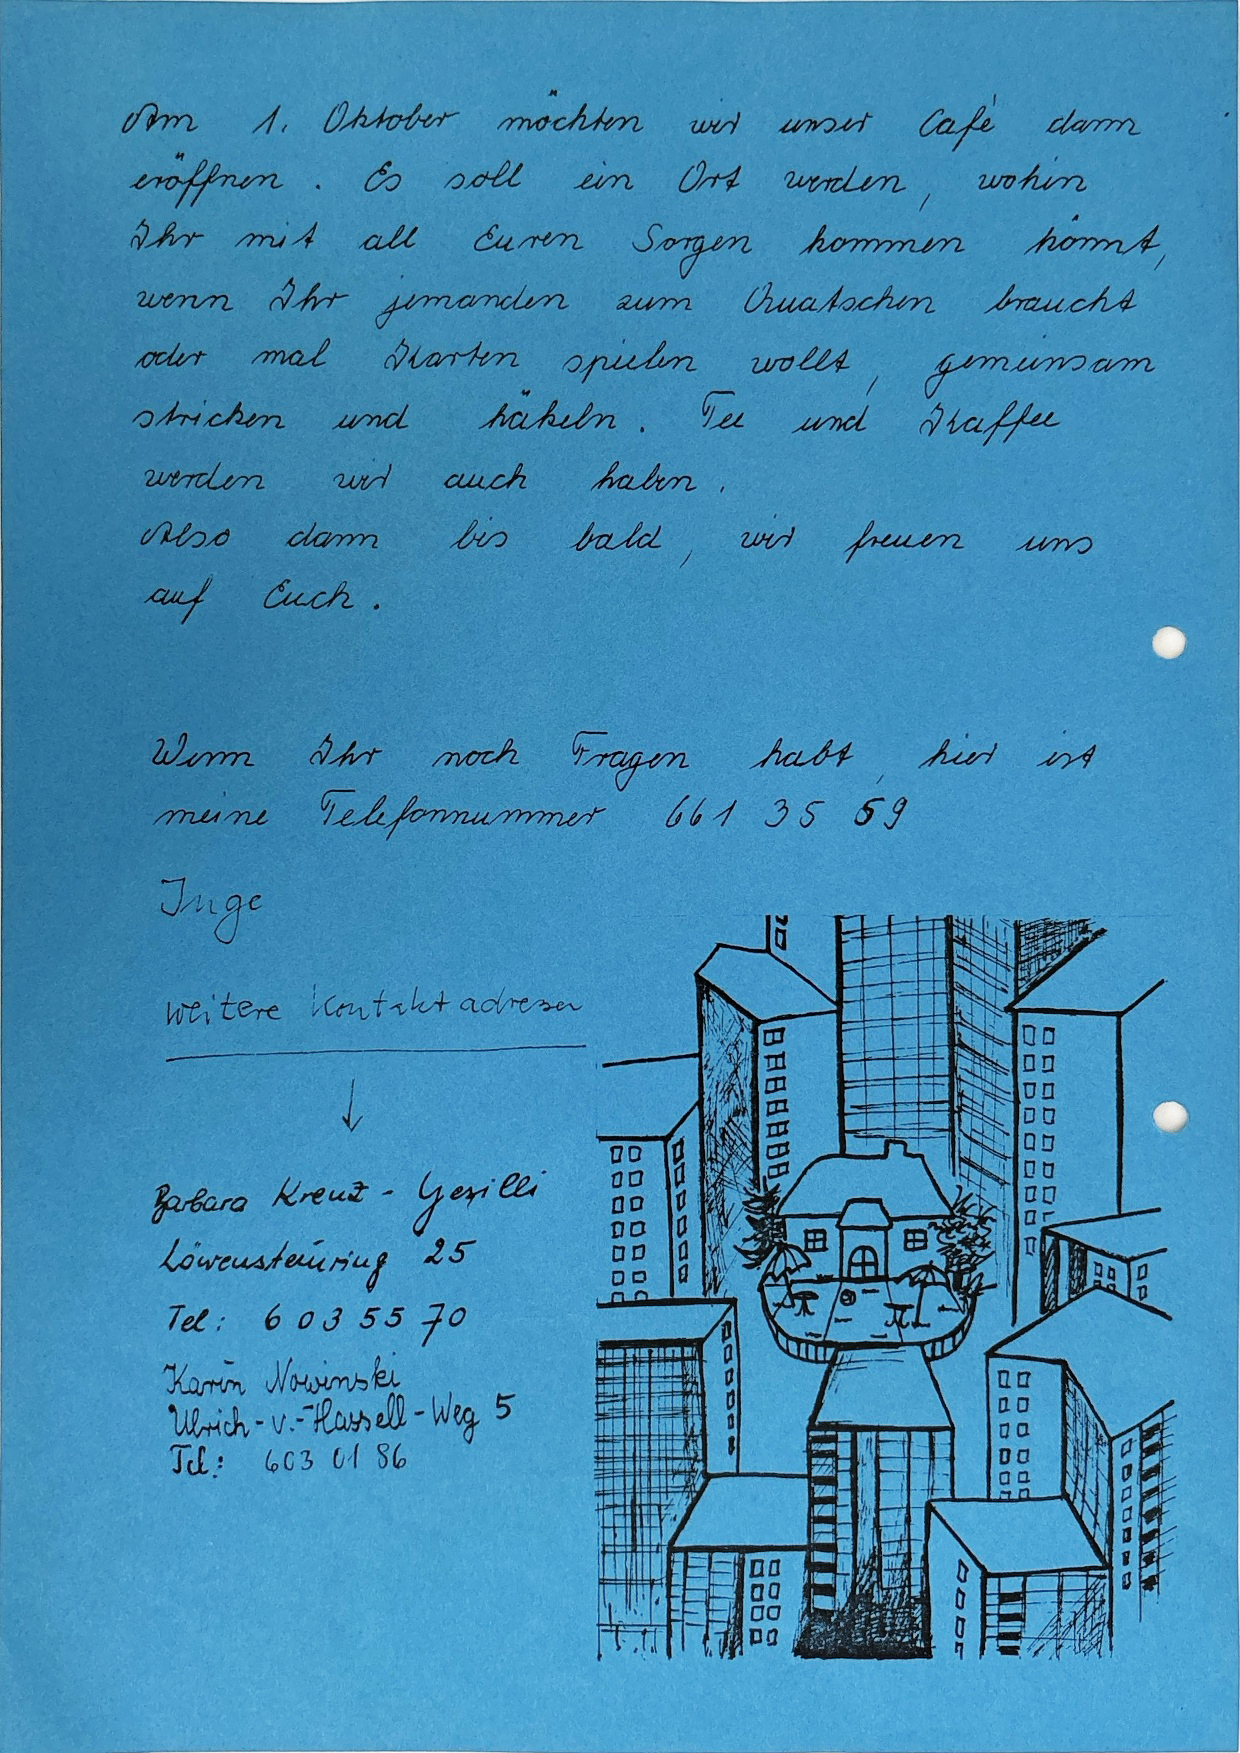 Am 1. Oktober möchten wir unser Café dann
eröffnen. Es soll ein Ort werden, wohin
Ihr mit all Euren Sorgen kommen könnt,
wenn Ihr jemanden zum Quatschen braucht
oder mal Karten spielen wollt, gemeinsam
stricken und häkeln. Tee und Kaffee
werden wir auch haben.
Also dann bis bald, wir freuen uns
auf Euch.
Wenn Ihr noch Fragen habt, hier ist
meine Telefonnummer 661 35 59
Inge
weitere Kontaktadressen
Barbara Kreuz-
Löwensteinring 25
Tel: 6 03 55 70
Karin Nowinski
Ulrich-v.-Hassell-Weg 5
Tel: 603 01 86